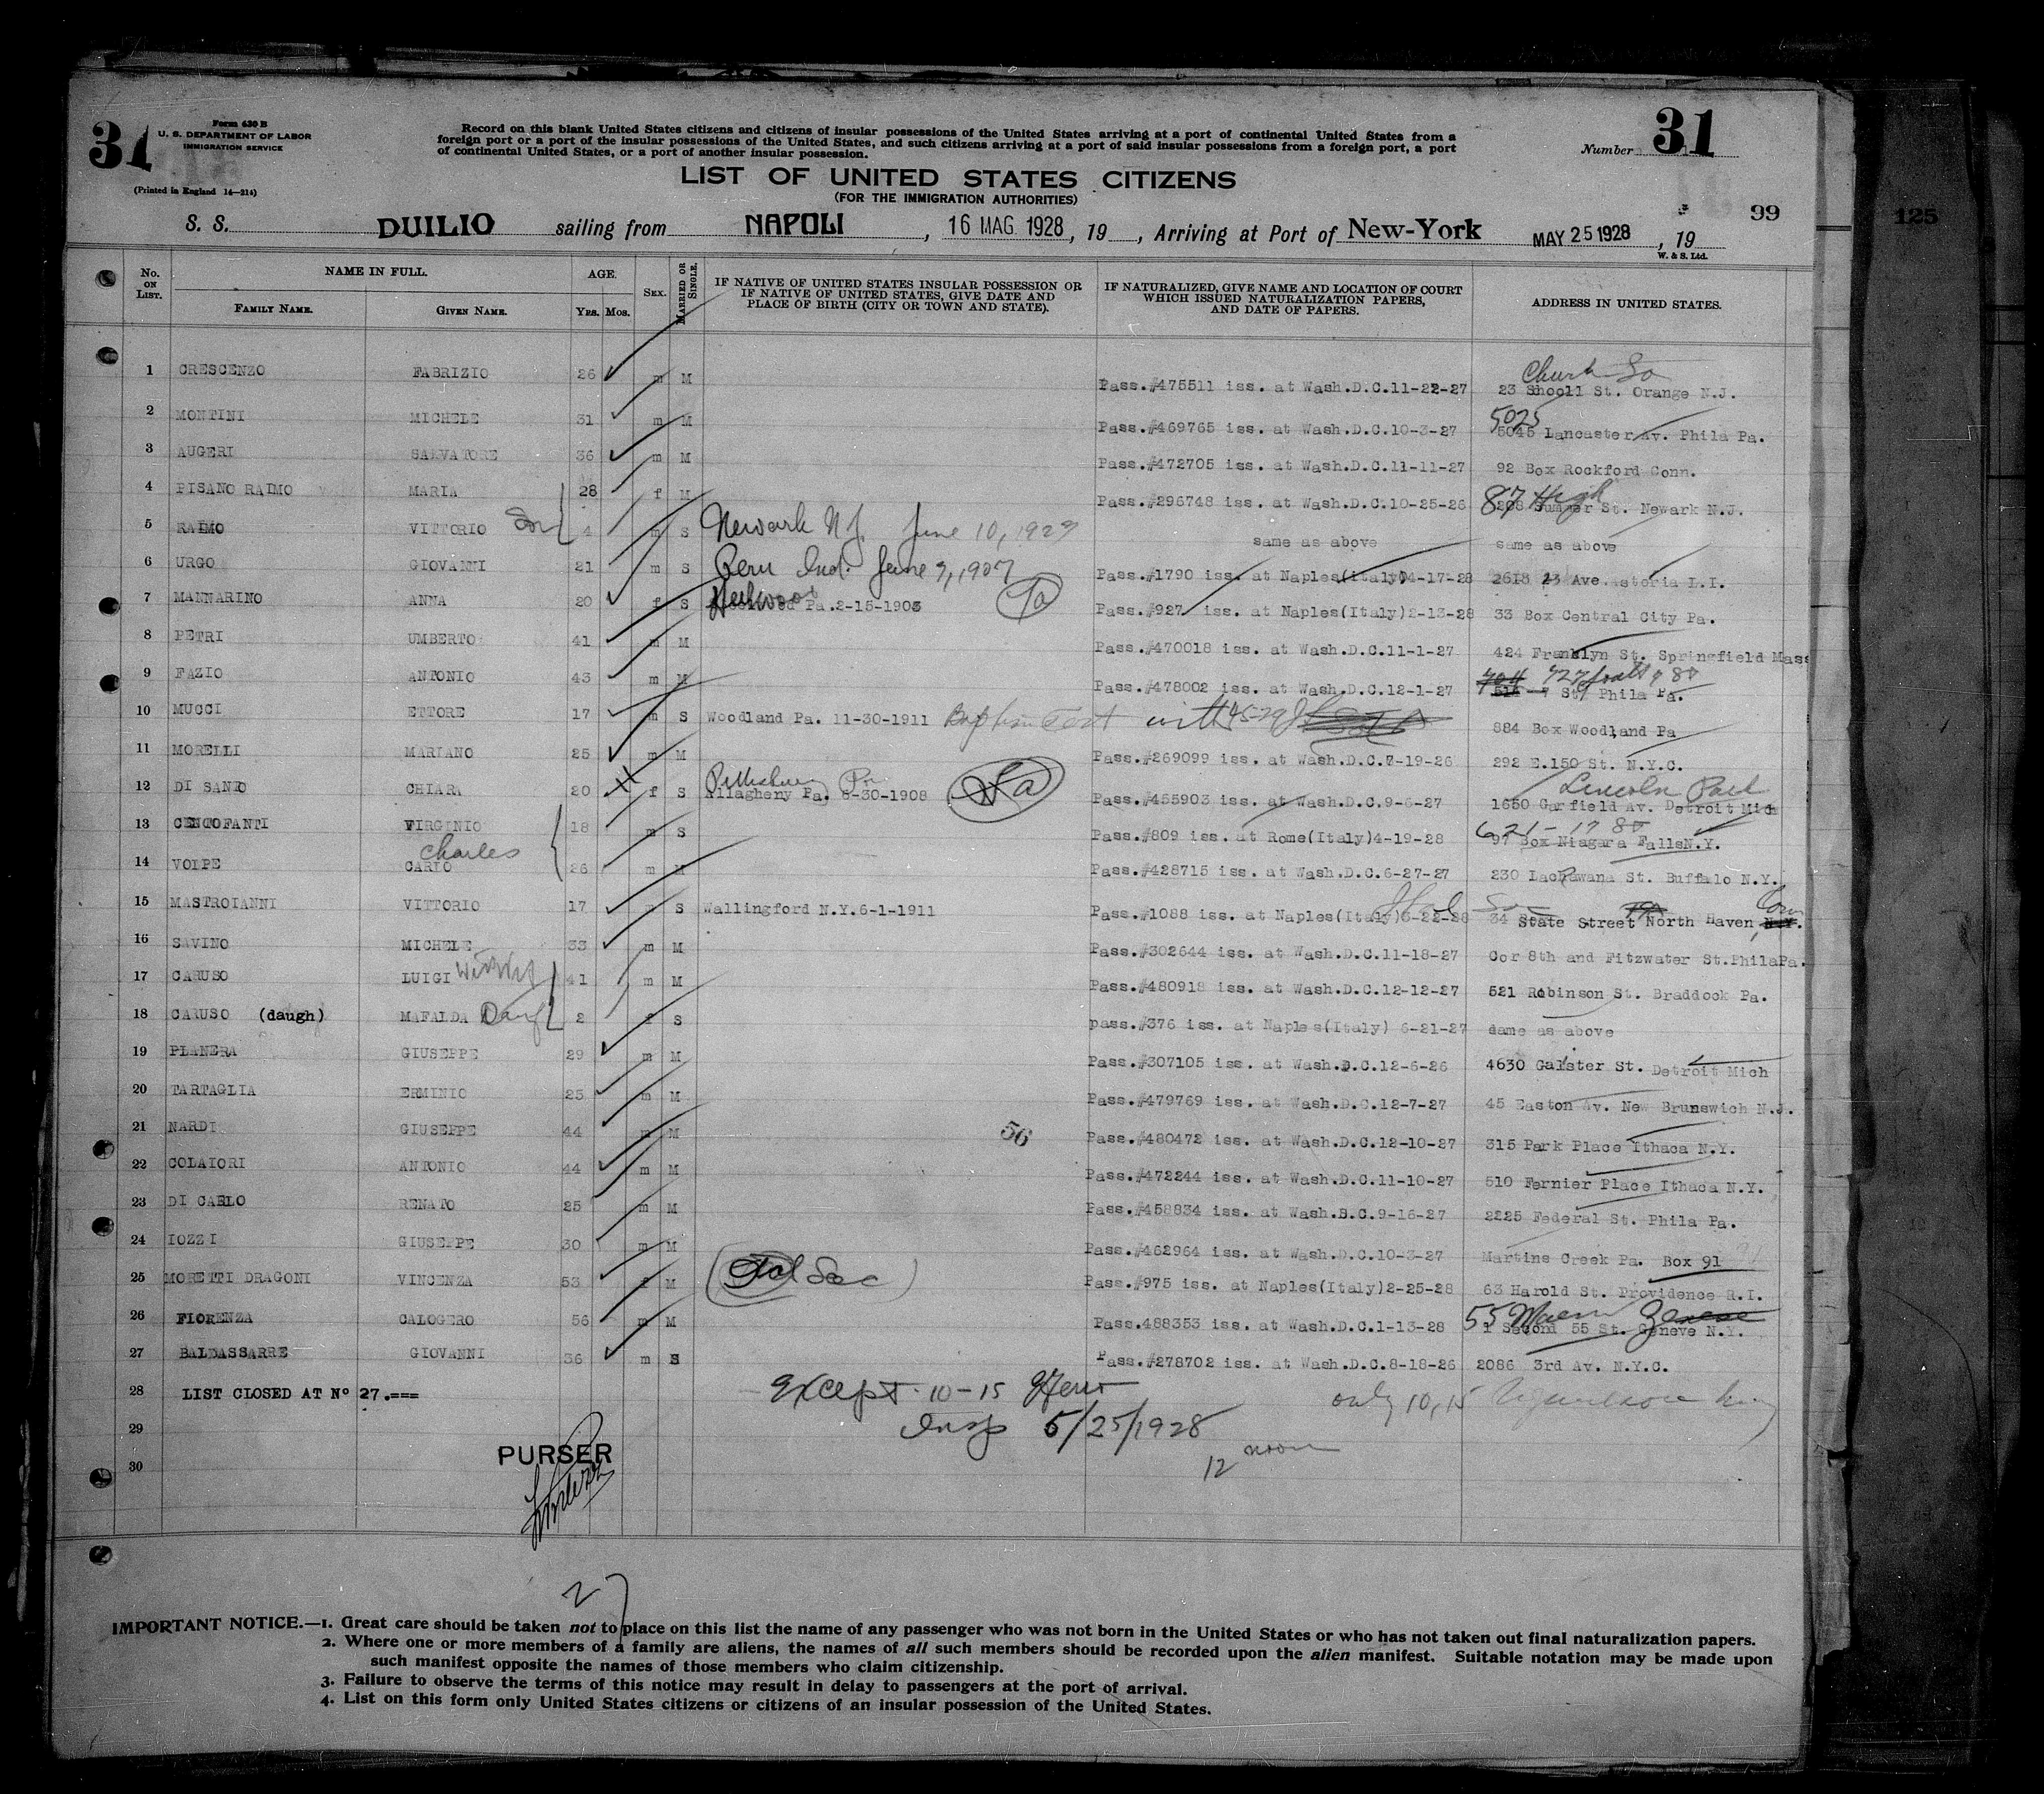 31
Form 430 B
U. S. DEPARTMENT OF LABOR
IMMIGRATION SERVICE
(Printed in England 14—214)
Record on this blank United States citizens and citizens of insular possessions of the United States arriving at a port of continental United States from a
foreign port or a port of the insular possessions of the United States, and such citizens arriving at a port of said insular possessions from a foreign port, a port
of continental United States, or a port of another insular possession.
Number 31
LIST OF UNITED STATES CITIZENS
(FOR THE IMMIGRATION AUTHORITIES)
99
125
S. S. DUILIO sailing from NAPOLI, 16 MAG. 1928, 19 , Arriving at Port of New-York MAY 25 1928, 19
W. & S. Ltd.
No. ON LIST. NAME IN FULL. FAMILY NAME. GIVEN NAME. AGE. YRS. MOS. SEX. MARRIED OR SINGLE. IF NATIVE OF UNITED STATES INSULAR POSSESSION OR IF NATIVE OF UNITED STATES, GIVE DATE AND PLACE OF BIRTH (CITY OR TOWN AND STATE). IF NATURALIZED, GIVE NAME AND LOCATION OF COURT WHICH ISSUED NATURALIZATION PAPERS, AND DATE OF PAPERS. ADDRESS IN UNITED STATES.
1 CRESCENZO FABRIZIO 26 m M Pass.#475511 iss. at Wash.D.C.11-22-27 23 St. Orange N.J.
2 MONTINI MICHELE 31 m M Pass.#469765 iss. at Wash.D.C.10-3-27 5025 5045 Lancaster Av. Phila Pa.
3 AUGERI SALVATORE 36 m M Pass.#472705 iss. at Wash.D.C.11-11-27 92 Box Rockford Conn.
4 PISANO RAIMO MARIA 28 f M Pass.#296748 iss. at Wash.D.C.10-25-26 87 High 208 Sumner St. Newark N.J.
5 RAIMO VITTORIO Son 4 m S Newark N.J. June 10, 1923 same as above same as above
6 URGO GIOVANTI 21 m S Peru Ind. June 9, 1907 Pass.#1790 iss. at Naples(Italy)04-17-28 2618 23 Ave.Astoria L.I.
7 MANNARINO ANNA 20 f S Pa.2-15-1908 Pass.#927 iss. at Naples(Italy)2-13-28 33 Box Central City Pa.
8 PETRI UMBERTO 41 m M Pass.#470018 iss. at Wash.D.C.11-1-27 424 Franklyn St. Springfield Mass
9 FAZIO ANTONIO 43 m M Pass.#478002 iss. at Wash.D.C.12-1-27 7 St. Phila Pa.
10 MUCCI ETTORE 17 m S Woodland Pa. 11-30-1911 884 Box Woodland Pa
11 MORELLI MARIANO 25 m M Pass.#269099 iss. at Wash.D.C.7-19-26 292 E.150 St. N.Y.C.
12 DI SANTO CHIARA 20 f S Pittsburg Pa Allagheny Pa. 6-30-1908 Pass.#455903 iss. at Wash.D.C.9-6-27 Lincoln Park 1650 Garfield Av. Detroit Mich
13 CENTOFANTI VIRGINIO 18 m S Pass.#809 iss. at Rome(Italy)4-19-28 97 Box Niagara FallsN.Y.
14 VOLPE Charles CARLO 26 m M Pass.#428715 iss. at Wash.D.C.6-27-27 230 Lackawana St. Buffalo N.Y.
15 MASTROIANNI VITTORIO 17 m S Wallingford N.Y.6-1-1911 Pass.#1088 iss. at Naples(Italy) 34 State Street North Haven, Conn N.Y.
16 SAVINO MICHELE 33 m M Pass.#302644 iss. at Wash.D.C.11-18-27 Cor 8th and Fitzwater St.PhilaPa.
17 CARUSO LUIGI 41 m M Pass.#480918 iss. at Wash.D.C.12-12-27 521 Robinson St. Braddock Pa.
18 CARUSO (daugh) MAFALDA 2 f S pass.#376 iss. at Naples(Italy) 6-21-27 dame as above
19 PLANERA GIUSEPPE 29 m M Pass.#307105 iss. at Wash.D.C.12-6-26 4630 Galster St. Detroit Mich
20 TARTAGLIA ERMINIO 25 m M Pass.#479769 iss. at Wash.D.C.12-7-27 45 Easton Av. New Brunswich N.J.
21 NARDI GIUSEPPE 44 m M 56 Pass.#480472 iss. at Wash.D.C.12-10-27 315 Park Place Ithaca N.Y.
22 COLAIORI ANTONIO 44 m M Pass.#472244 iss. at Wash.D.C.11-10-27 510 Fernier Place Ithaca N.Y.
23 DI CARLO RENATO 25 m M Pass.#458834 iss. at Wash.S.C.9-16-27 2225 Federal St. Phila Pa.
24 IOZZI GIUSEPPE 30 m M Pass.#462964 iss. at Wash.D.C.10-3-27 Martins Creek Pa. Box 91
25 MORETTI DRAGONI VINCENZA 53 f M Pass.#975 iss. at Naples(Italy)2-25-28 63 Harold St. Providence R.I.
26 FIORENZA CALOGERO 56 m M Pass.488353 iss. at Wash.D.C.1-13-28 1 Second 55 St. Geneve N.Y.
27 BALDASSARRE GIOVANNI 36 m S Pass.#278702 iss. at Wash.D.C.8-18-26 2086 3rd Av. N.Y.C.
28 LIST CLOSED AT No 27.=== Except 10-15 only 10, 15
29 Insp 5/25/1928
PURSER
30 12 noon
27
IMPORTANT NOTICE.—1. Great care should be taken not to place on this list the name of any passenger who was not born in the United States or who has not taken out final naturalization papers.
2. Where one or more members of a family are aliens, the names of all such members should be recorded upon the alien manifest. Suitable notation may be made upon
such manifest opposite the names of those members who claim citizenship.
3. Failure to observe the terms of this notice may result in delay to passengers at the port of arrival.
4. List on this form only United States citizens or citizens of an insular possession of the United States.